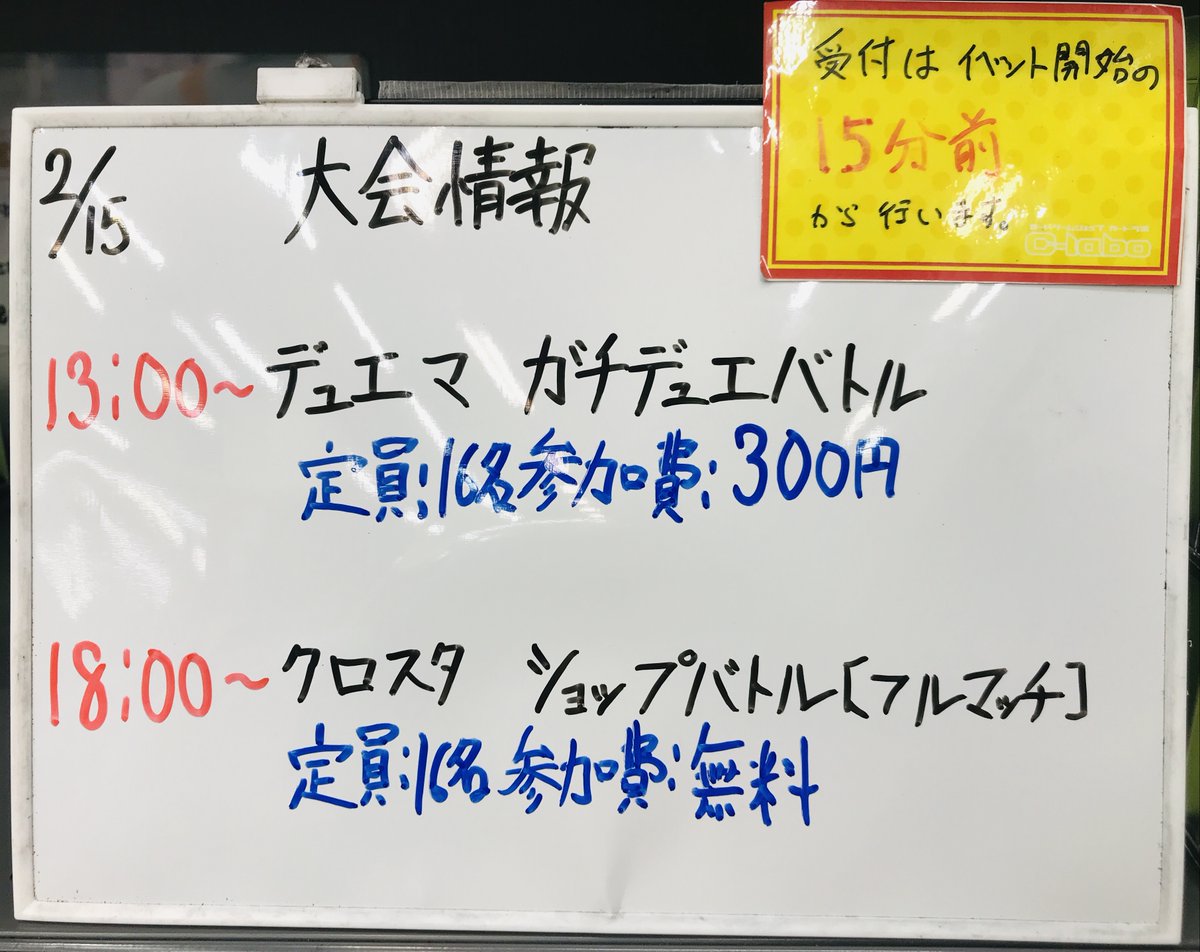 受付は イベント開始の
15分前
から行います。
C-labo
2/15 大会情報
13:00～デュエマ ガチデュエバトル
定員:16名 参加費:300円
18:00～クロスタ ショップバトル[フルマッチ]
定員:16名 参加費:無料